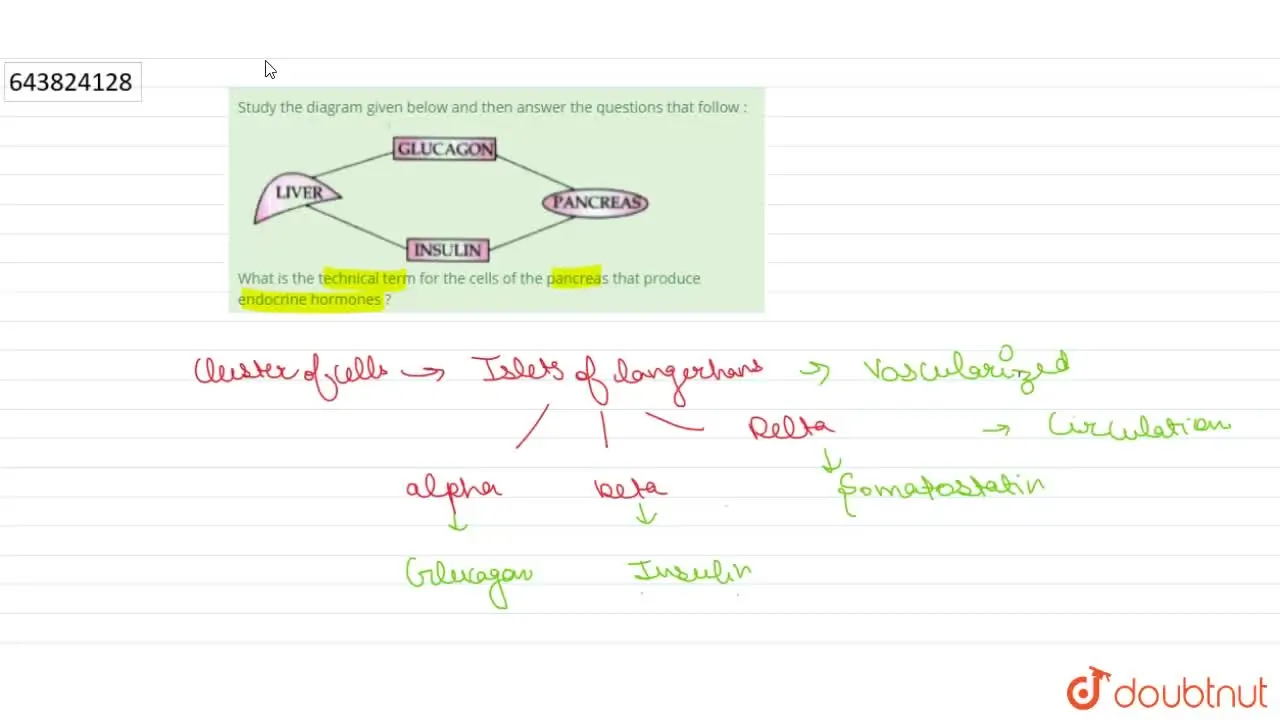 643824128
Study the diagram given below and then answer the questions that follow :
GLUCAGON
LIVER
PANCREAS
INSULIN
What is the technical term for the cells of the pancreas that produce
endocrine hormones ?
Cluster of cells → Islets of langerhans → Vascularized
Delta → Circulation
alpha beta ↓ Somatostatin
↓ ↓
Glucagon Insulin
doubtnut